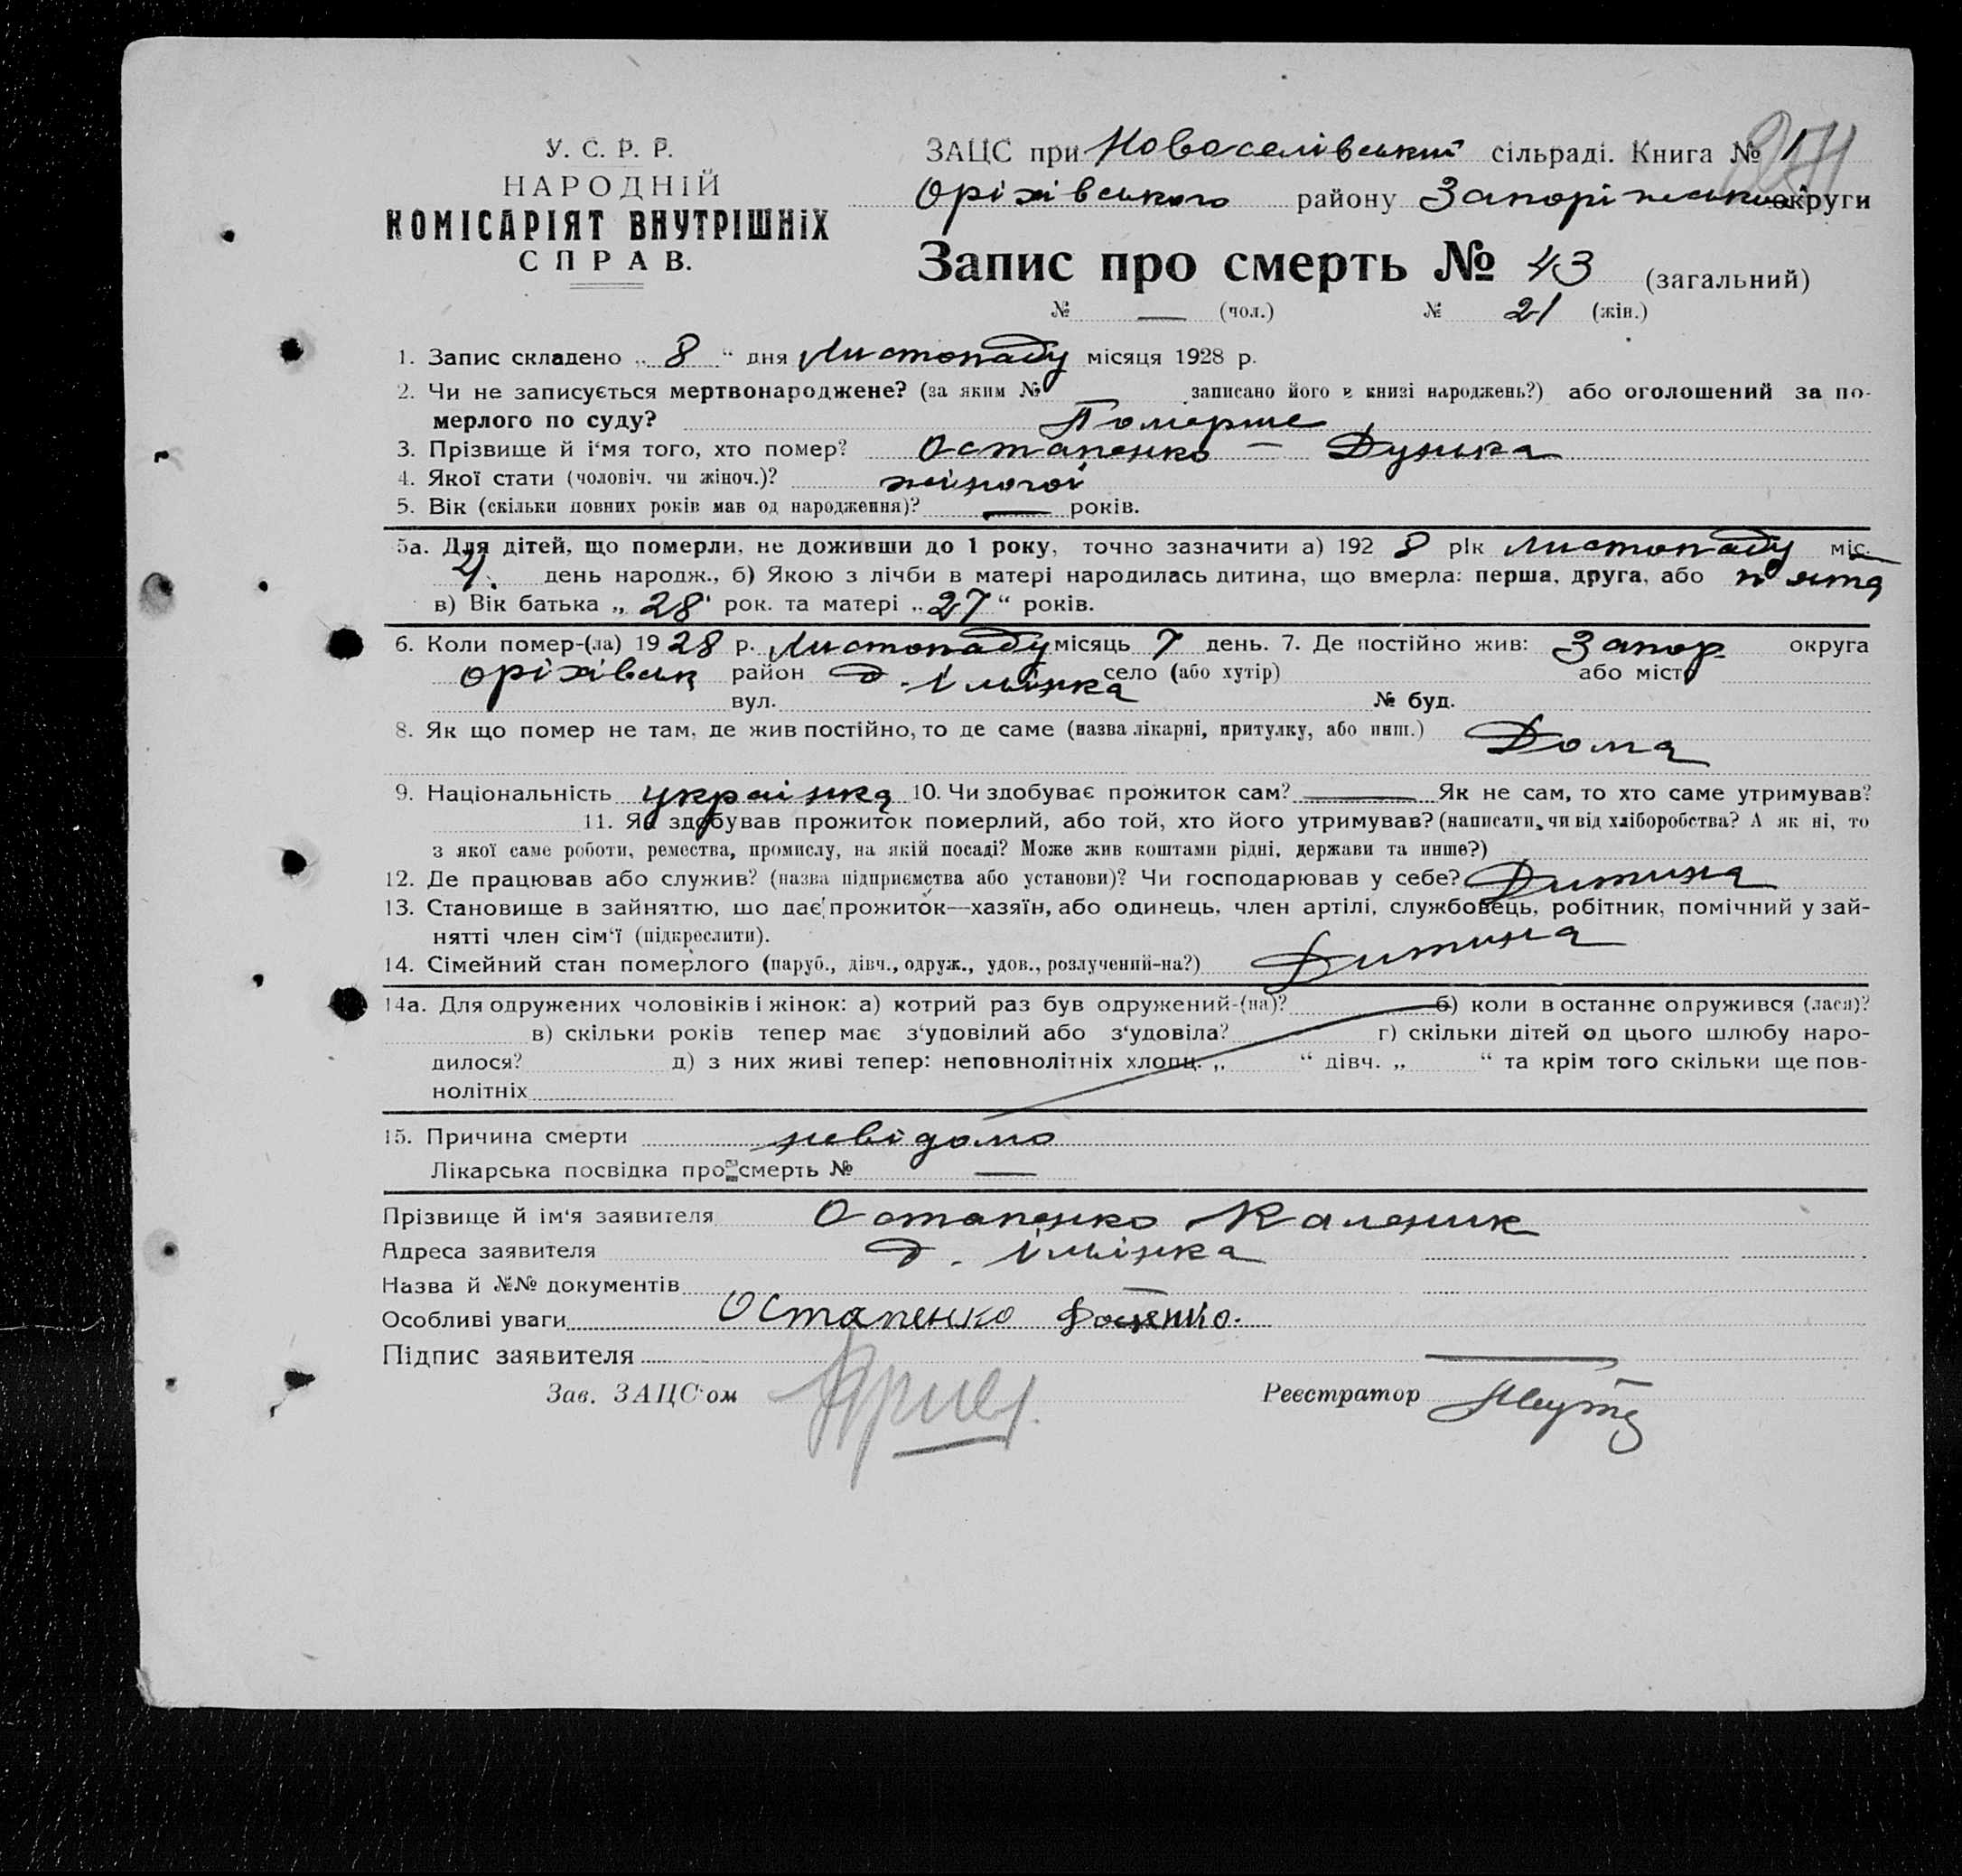 У. С. Р. Р.
НАРОДНІЙ
КОМІСАРІЯТ ВНУТРІШНІХ
СПРАВ.
ЗАЦС при Новоселівський сільраді. Книга № 1
Оріхівського району Запоріжської округи
Запис про смерть № 43 (загальний)
№ — (чол.) № 21 (жін.)
1. Запис складено „ 8 “ дня Листопаду місяця 1928 р.
2. Чи не записується мертвонароджене? (за яким № записано його в книзі народжень?) або оголошений за по-
мерлого по суду? Померше
3. Прізвище й і‘мя того, хто помер? Остапенко — Дунька
4. Якої статі (чоловіч. чи жіноч.)? жіночої
5. Вік (скільки повних років мав од народження)? — років.
5а. Для дітей, що померли, не доживши до 1 року, точно зазначити а) 192 8 рік Листопаду міс.
день народж., б) Якою з лічби в матері народилась дитина, що вмерла: перша, друга, або п'ята
в) Вік батька „ 28 “ рок. та матері „ 27 “ років.
6. Коли помер-(ла) 19 28 р. Листопаду місяць 7 день. 7. Де постійно жив: Запор округа
Оріхівськ район село (або хутір) або місто
вул. № буд.
8. Як що помер не там, де жив постійно, то де саме (назва лікарні, притулку, або инш.) Дома
9. Національність українка 10. Чи здобуває прожиток сам? — Як не сам, то хто саме утримував?
11. Як здобував прожиток померлий, або той, хто його утримував? (написати, чи від хліборобства? А як ні, то
з якої саме роботи, ремества, промислу, на якій посаді? Може жив коштами рідні, держави та инше?)
12. Де працював або служив? (назва підприємства або установи)? Чи господарював у себе? Дитина
13. Становище в зайняттю, що дає прожиток—хазяїн, або одинець, член артілі, службовець, робітник, помічний у зай-
нятті член сім‘ї (підкреслити).
14. Сімейний стан померлого (паруб., дівч., одруж., удов., розлучений-на?) Дитина
14а. Для одружених чоловіків і жінок: а) котрий раз був одружений-(на)? б) коли в останнє одружився (лася)?
в) скільки років тепер має з‘удовілий або з‘удовіла? г) скільки дітей од цього шлюбу наро-
дилося? д) з них живі тепер: неповнолітніх хлопц. „ “ дівч. „ “ та крім того скільки ще пов-
нолітніх
15. Причина смерти невідомо
Лікарська посвідка про смерть № —
Прізвище й ім‘я заявителя Остапенко Каленик
Адреса заявителя
Назва й №№ документів
Особливі уваги Остапенко
Підпис заявителя —
Зав. ЗАЦС‘ом Реєстратор